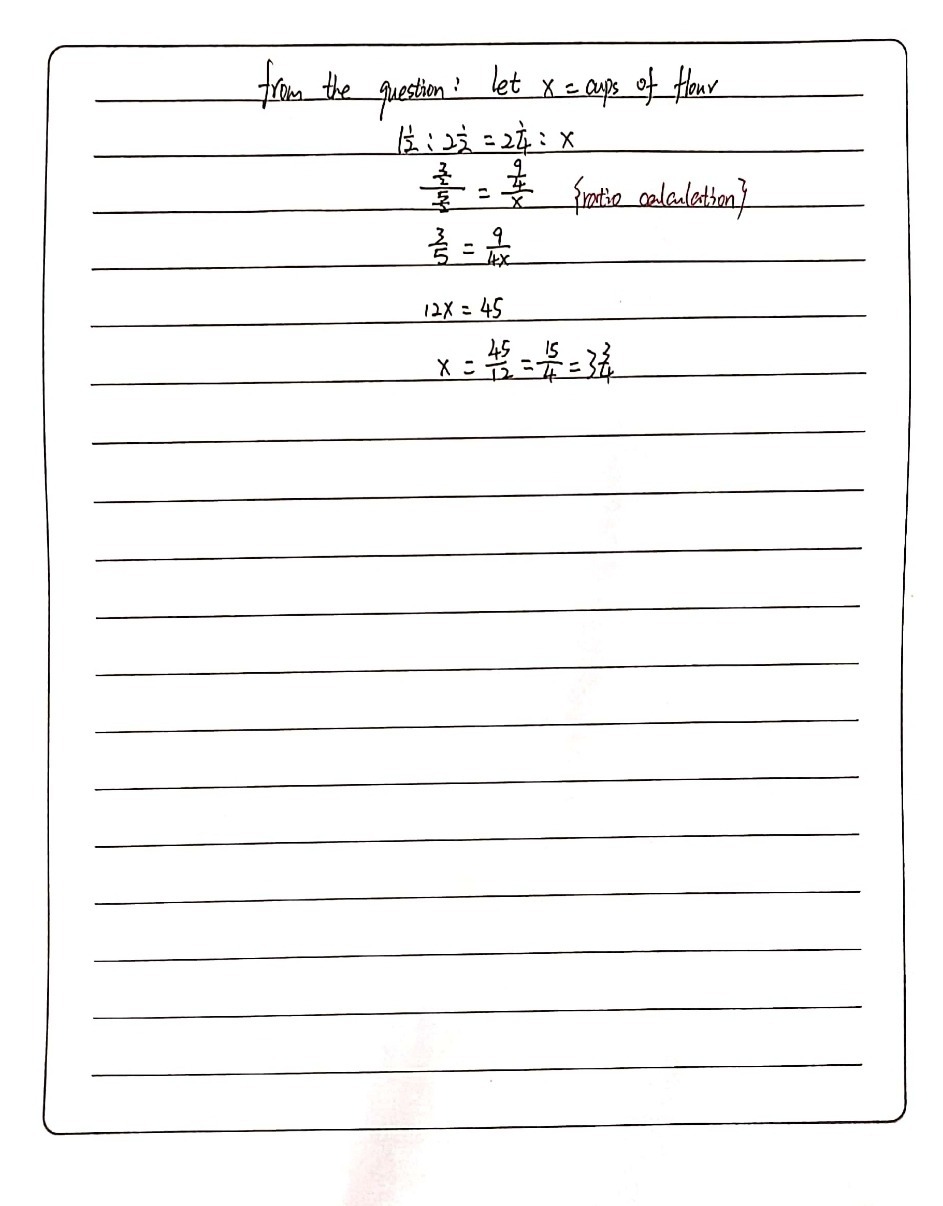 from the question: let x = cups of flour
1 1/2 : 2 1/2 = 2 1/4 : x
(3/2)/(5/2) = (9/4)/x {ratio calculation}
3/5 = 9/4x
12x = 45
x = 45/12 = 15/4 = 3 3/4